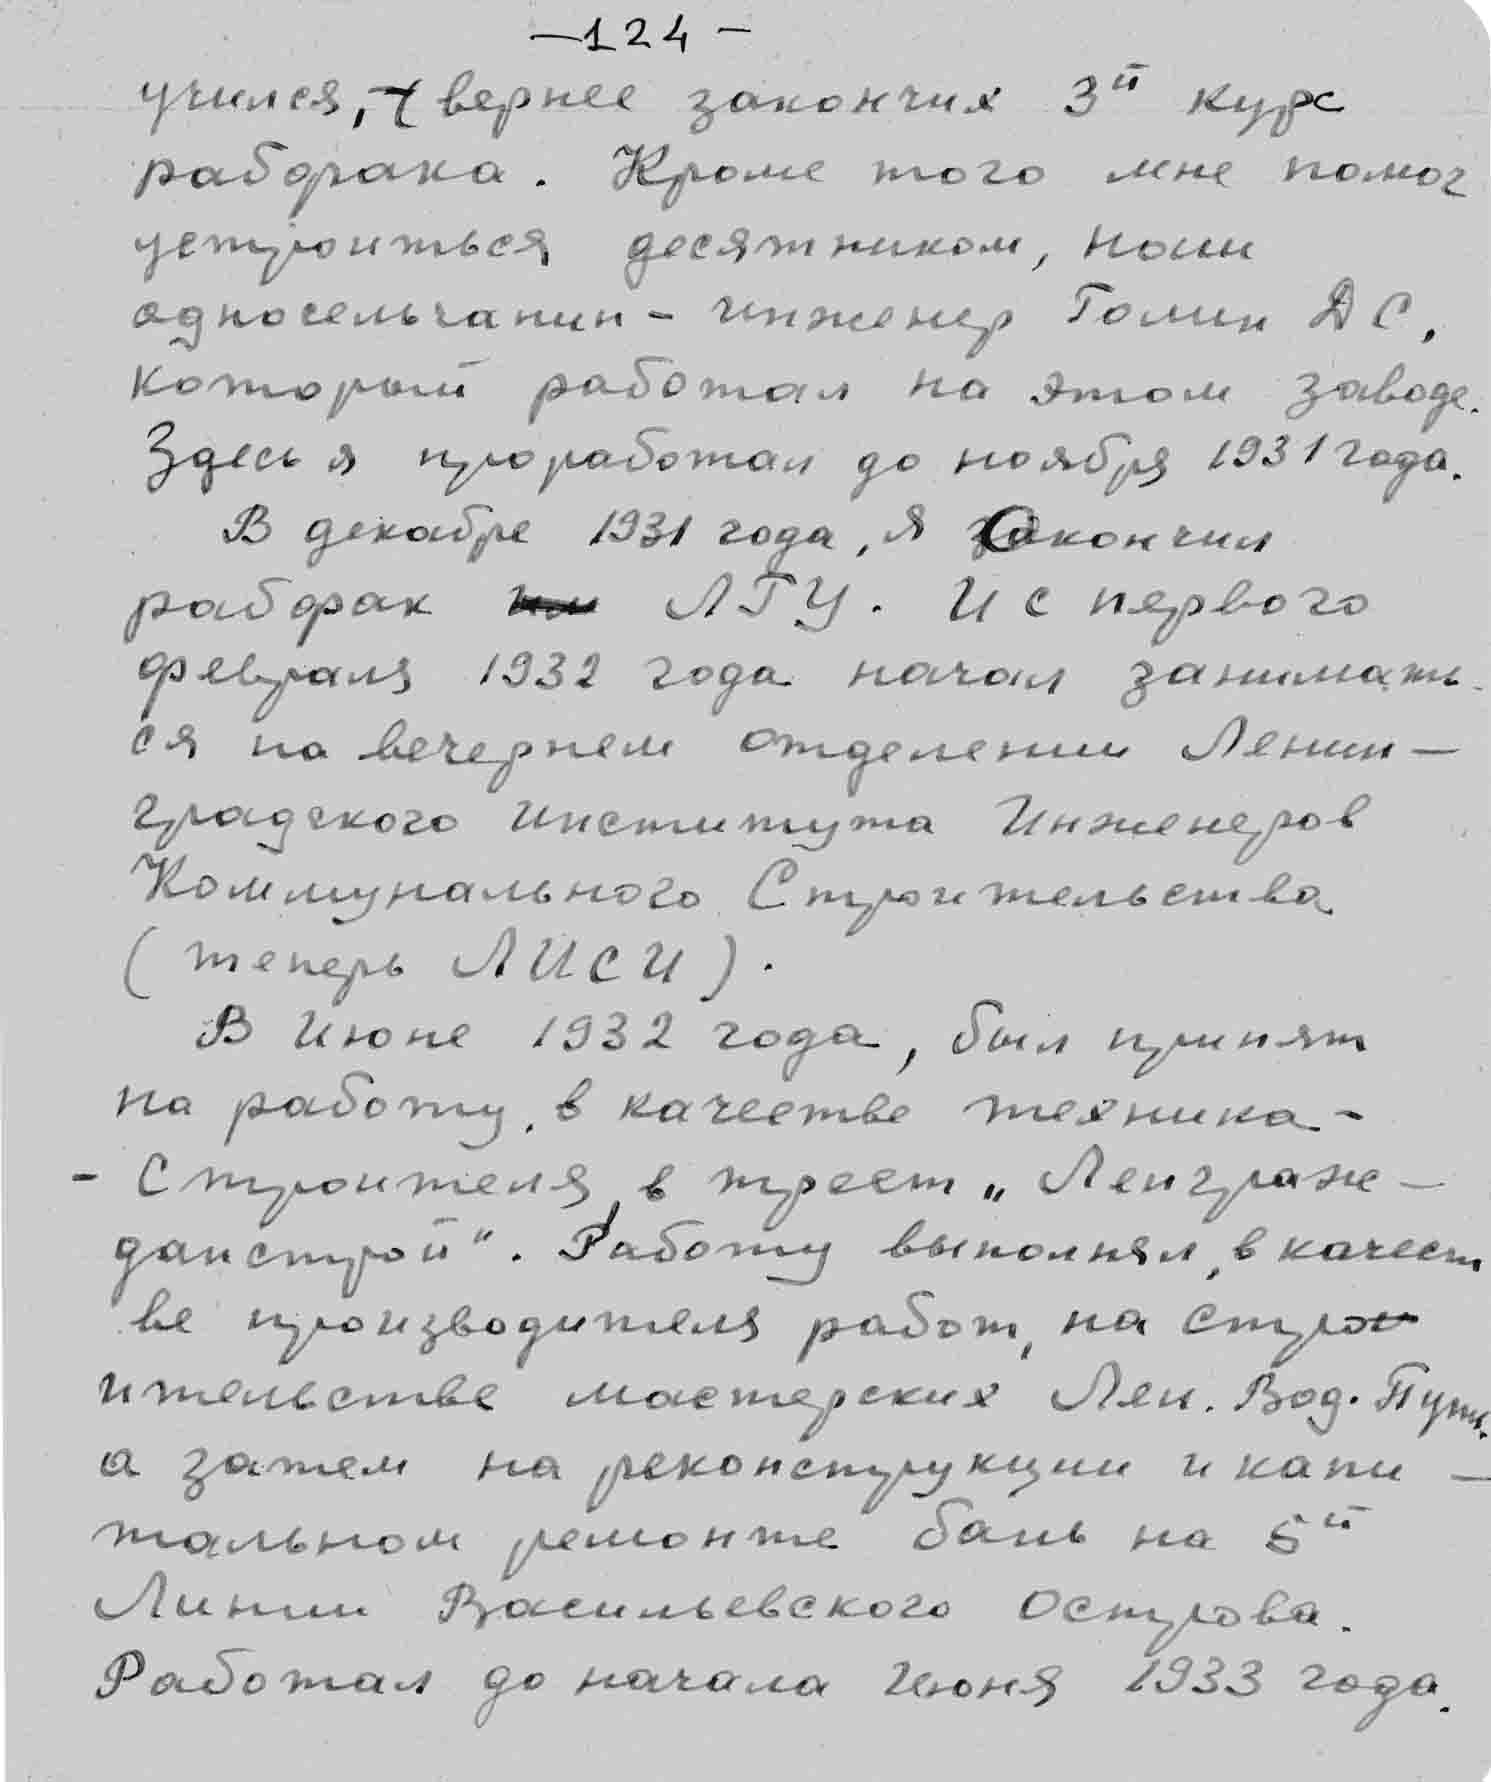 —124—
учился, (вернее закончил 3й курс
рабфака. Кроме того мне помог
устроиться десятником, наш
односельчанин - инженер Гомин ДС,
который работал на этом заводе.
Здесь я проработал до ноября 1931 года.
В декабре 1931 года, я закончил
рабфак ЛГУ. И с первого
февраля 1932 года начал занимать-
ся на вечернем отделении Ленин-
градского института Инженеров
Коммунального Строительства
(теперь ЛИСИ).
В Июне 1932 года, был принят
на работу, в качестве техника-
- Строителя, в трест „Ленграж-
данстрой". Работу выполнял, в качест
ве производителя работ, на стро
ительстве мастерских Лен. Вод. Пути.
а затем на реконструкции и капи-
тальном ремонте бань на 5й
Линии Васильевского Острова.
Работал до начала Июня 1933 года.